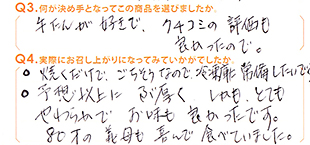 Q3.何が決め手となってこの商品を選びましたか。
牛たんが好きで、クチコミの評価も
良かったので。
Q4.実際にお召し上がりになってみていかがでしたか。
○焼くだけで、ごちそうなので冷凍庫に常備したいで
○予想以上に 厚く しかも、とても
やわらかで お味も良かったです。
80才の義母も喜んで食べていました。